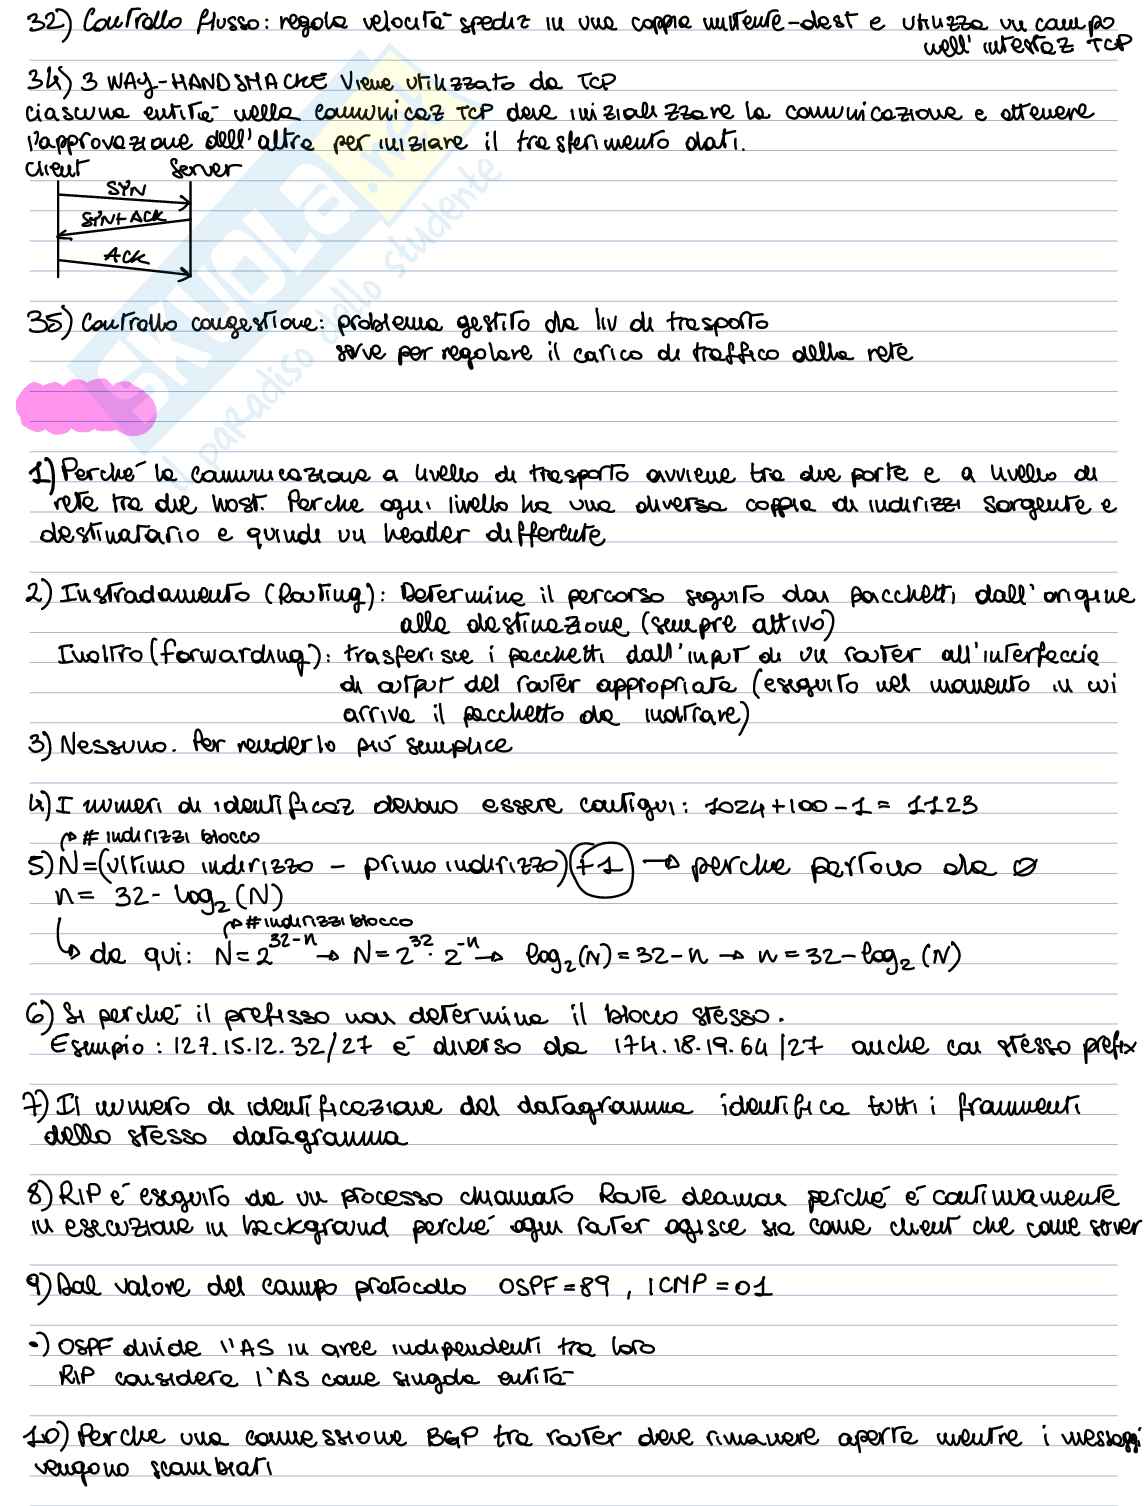 32) Controllo flusso: regola velocità spediz in una coppia mittente-dest e utilizza un campo
nell'intestaz TCP
34) 3 WAY-HANDSHACKE Viene utilizzato da TCP
ciascuna entità nella comunicaz TCP deve inizializzare la comunicazione e ottenere
l'approvazione dell'altra per iniziare il trasferimento dati.
Client Server
SYN
SYN+ACK
ACK
35) Controllo congestione: problema gestito da liv di trasporto
serve per regolare il carico di traffico della rete
1) Perché la comunicazione a livello di trasporto avviene tra due porte e a livello di
rete tra due host. Perche ogni livello ha una diversa coppia di indirizzi sorgente e
destinatario e quindi un header differente
2) Instradamento (Routing): Determina il percorso seguito dai pacchetti dall'origine
alla destinazione (sempre attivo)
Inoltro (forwarding): trasferisce i pacchetti dall'input di un router all'interfaccia
di output del router appropriata (eseguito nel momento in cui
arriva il pacchetto da inoltrare)
3) Nessuno. Per renderlo più semplice
4) I numeri di identificaz devono essere contigui: 1024+100-1= 1123
# indirizzi blocco
5) N=(ultimo indirizzo - primo indirizzo)+1 → perche partono da 0
n= 32- log₂(N)
# indirizzi blocco
da qui: N=2^32-n → N=2^32 · 2^-n → log₂(N)=32-n → n=32-log₂(N)
6) Si perché il prefisso non determina il blocco stesso.
Esempio: 127.15.12.32/27 è diverso da 174.18.19.64/27 anche con stesso prefix
7) Il numero di identificazione del datagramma identifica tutti i frammenti
dello stesso datagramma
8) RIP è eseguito da un processo chiamato Route deamon perché è continuamente
in esecuzione in background perché ogni router agisce sia come client che come server
9) Dal valore del campo protocollo OSPF=89, ICMP=01
•) OSPF divide l'AS in aree indipendenti tra loro
RIP considera l'AS come singola entità
10) Perche una connessione BGP tra router deve rimanere aperta mentre i messaggi
vengono scambiati
SKUOLA.net
il paradiso dello studente